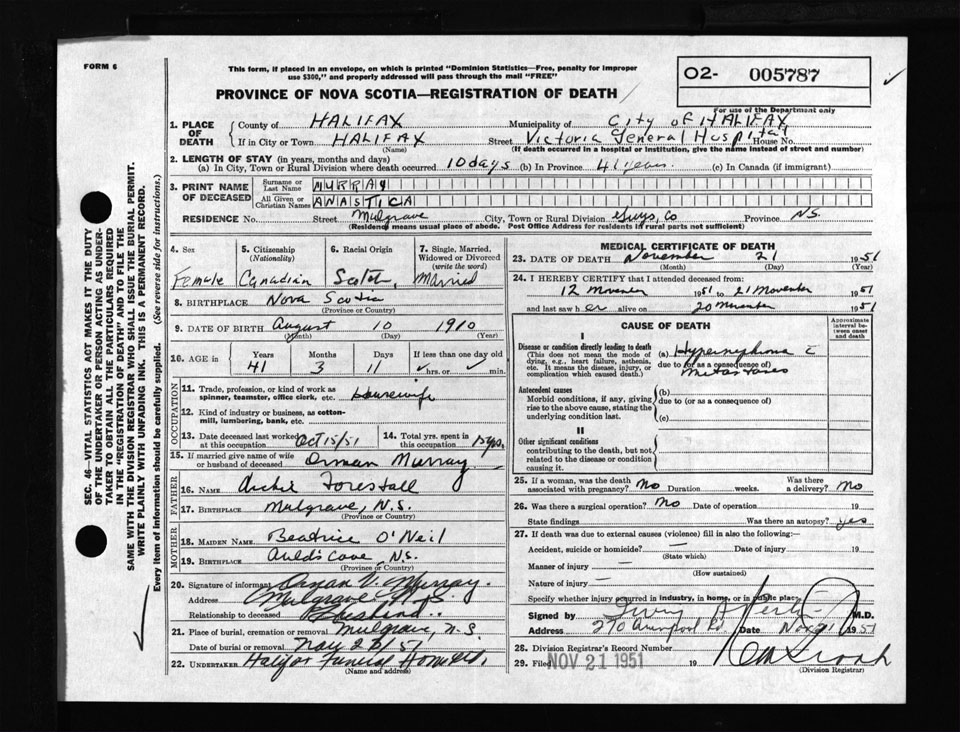 FORM 6
This form, if placed in an envelope, on which is printed "Dominion Statistics—Free, penalty for improper
use $300," and properly addressed will pass through the mail "FREE"
PROVINCE OF NOVA SCOTIA—REGISTRATION OF DEATH
02- 005787
For use of the Department only
1. PLACE OF DEATH
County of HALIFAX Municipality of City of HALIFAX
If in City or Town HALIFAX Street Victoria General Hospital House No.
(Name) (If death occurred in a hospital or institution, give the name instead of street and number)
2. LENGTH OF STAY (in years, months and days)
(a) In City, Town or Rural Division where death occurred 10 days (b) In Province 41 years (c) In Canada (if immigrant)
3. PRINT NAME OF DECEASED
Surname or Last Name MURRAY
All Given or Christian Names ANASTICA
RESIDENCE No. Street Mulgrave City, Town or Rural Division Guys, Co Province N.S.
(Residence means usual place of abode. Post Office Address for residents in rural parts not sufficient)
4. Sex
Female
5. Citizenship
(Nationality)
Canadian
6. Racial Origin
Scotch
7. Single, Married,
Widowed or Divorced
(write the word)
Married
8. BIRTHPLACE Nova Scotia
(Province or Country)
9. DATE OF BIRTH August 10 1910
(Month) (Day) (Year)
10. AGE in
Years Months Days If less than one day old
41 3 11 hrs. or min.
OCCUPATION
11. Trade, profession, or kind of work as
spinner, teamster, office clerk, etc. Housewife
12. Kind of industry or business, as cotton-
mill, lumbering, bank, etc.
13. Date deceased last worked
at this occupation Oct 15/51
14. Total yrs. spent in
this occupation 15 yrs.
15. If married give name of wife
or husband of deceased Orman Murray
FATHER
16. NAME Archie Forestall
17. BIRTHPLACE Mulgrave, N.S.
(Province or Country)
MOTHER
18. MAIDEN NAME Beatrice O'Neil
19. BIRTHPLACE Auld's Cove, N.S.
(Province or Country)
20. Signature of informant Orman V. Murray.
Address Mulgrave N.S.
Relationship to deceased Husband
21. Place of burial, cremation or removal Mulgrave, N.S.
Date of burial or removal Nov 23/51
22. UNDERTAKER Halifax Funeral Home Ltd.
(Name and address)
MEDICAL CERTIFICATE OF DEATH
23. DATE OF DEATH November 21 1951
(Month) (Day) (Year)
24. I HEREBY CERTIFY that I attended deceased from:
12 November 1951 to 21 November 1951
and last saw her alive on 20 November 1951
CAUSE OF DEATH
Approximate
interval be-
tween onset
and death
I
Disease or condition directly leading to death
(This does not mean the mode of
dying, e.g., heart failure, asthenia,
etc. It means the disease, injury, or
complication which caused death.)
(a) Hypernephroma c̄
due to (or as a consequence of)
Metastases
Antecedent causes
Morbid conditions, if any, giving
rise to the above cause, stating the
underlying condition last.
(b)
due to (or as a consequence of)
(c)
II
Other significant conditions
contributing to the death, but not
related to the disease or condition
causing it.
25. If a woman, was the death
associated with pregnancy? No Duration weeks. Was there
a delivery? No
26. Was there a surgical operation? No Date of operation 19
State findings Was there an autopsy? yes
27. If death was due to external causes (violence) fill in also the following:—
Accident, suicide or homicide? — Date of injury 19
(State which)
Manner of injury —
(How sustained)
Nature of injury —
Specify whether injury occurred in industry, in home, or in public place
Signed by M.D.
Address 270 Rd. Date Nov 21 1951
28. Division Registrar's Record Number
29. Filed NOV 21 1951 19
(Division Registrar)
SEC. 46—VITAL STATISTICS ACT MAKES IT THE DUTY
OF THE UNDERTAKER OR PERSON ACTING AS UNDER-
TAKER TO OBTAIN ALL THE PARTICULARS REQUIRED
IN THE "REGISTRATION OF DEATH" AND TO FILE THE
SAME WITH THE DIVISION REGISTRAR WHO SHALL ISSUE THE BURIAL PERMIT.
WRITE PLAINLY WITH UNFADING INK. THIS IS A PERMANENT RECORD.
Every item of information should be carefully supplied. (See reverse side for instructions.)